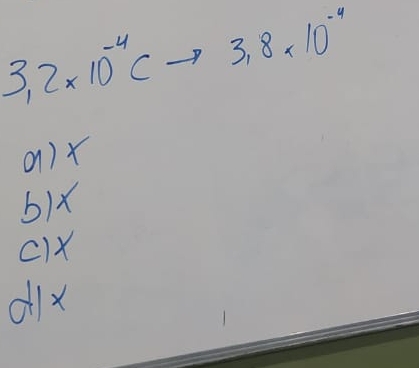 3,2 × 10⁻⁴ C → 3,8 × 10⁻⁴
a) x
b) x
c) x
d) x